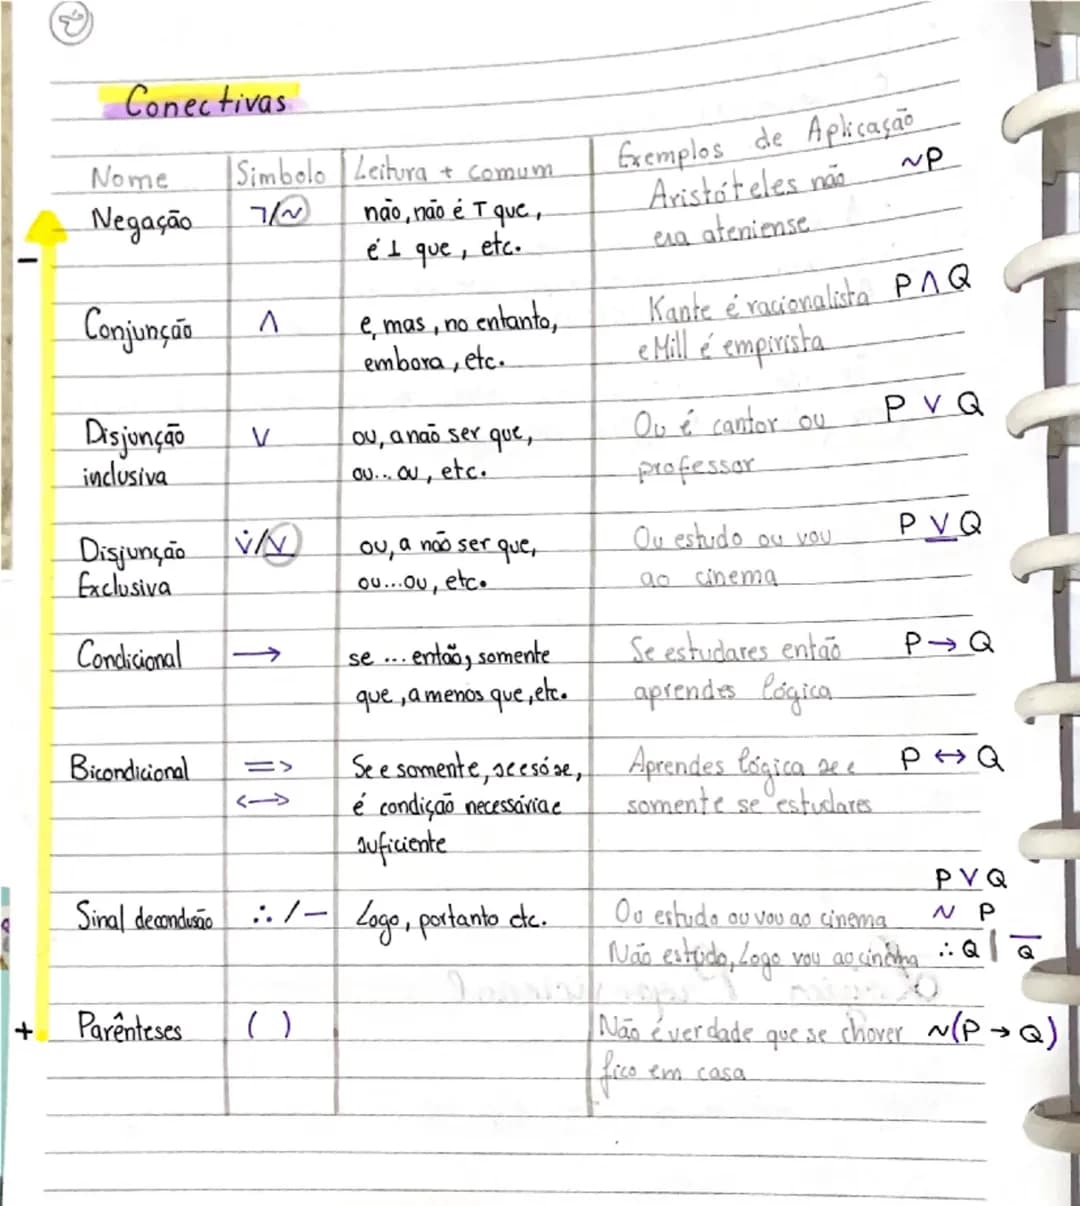 2
Conectivas
Nome Simbolo Leitura + comum Exemplos de Aplicação
Negação ¬/~ não, não é T que, Aristóteles não ~P
é ⊥ que, etc. era ateniense
-
Conjunção ∧ e, mas, no entanto, Kante é racionalista P ∧ Q
embora, etc. e Mill é empirista
Disjunção ∨ ou, a não ser que, Ou é cantor ou P ∨ Q
inclusiva ou... ou, etc. professor
Disjunção ∨̇/⊻ ou, a não ser que, Ou estudo ou vou P ⊻ Q
Exclusiva ou...ou, etc. ao cinema
Condicional → se ... então, somente Se estudares então P → Q
que, a menos que, etc. aprendes lógica
Bicondicional => Se e somente, se e só se, Aprendes lógica se e P ↔ Q
<-> é condição necessária e somente se estudares
suficiente
P ∨ Q
Sinal de conclusão ∴ / — Logo, portanto etc. Ou estudo ou vou ao cinema ~ P
Não estudo, Logo vou ao cinema ∴ Q | Q
+ Parênteses ( ) Não é verdade que se chover ~(P → Q)
fico em casa